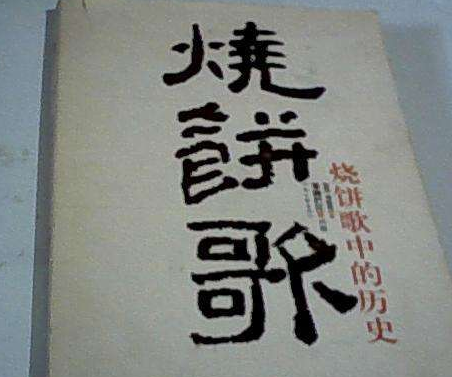 燒餅歌
烧饼歌中的历史